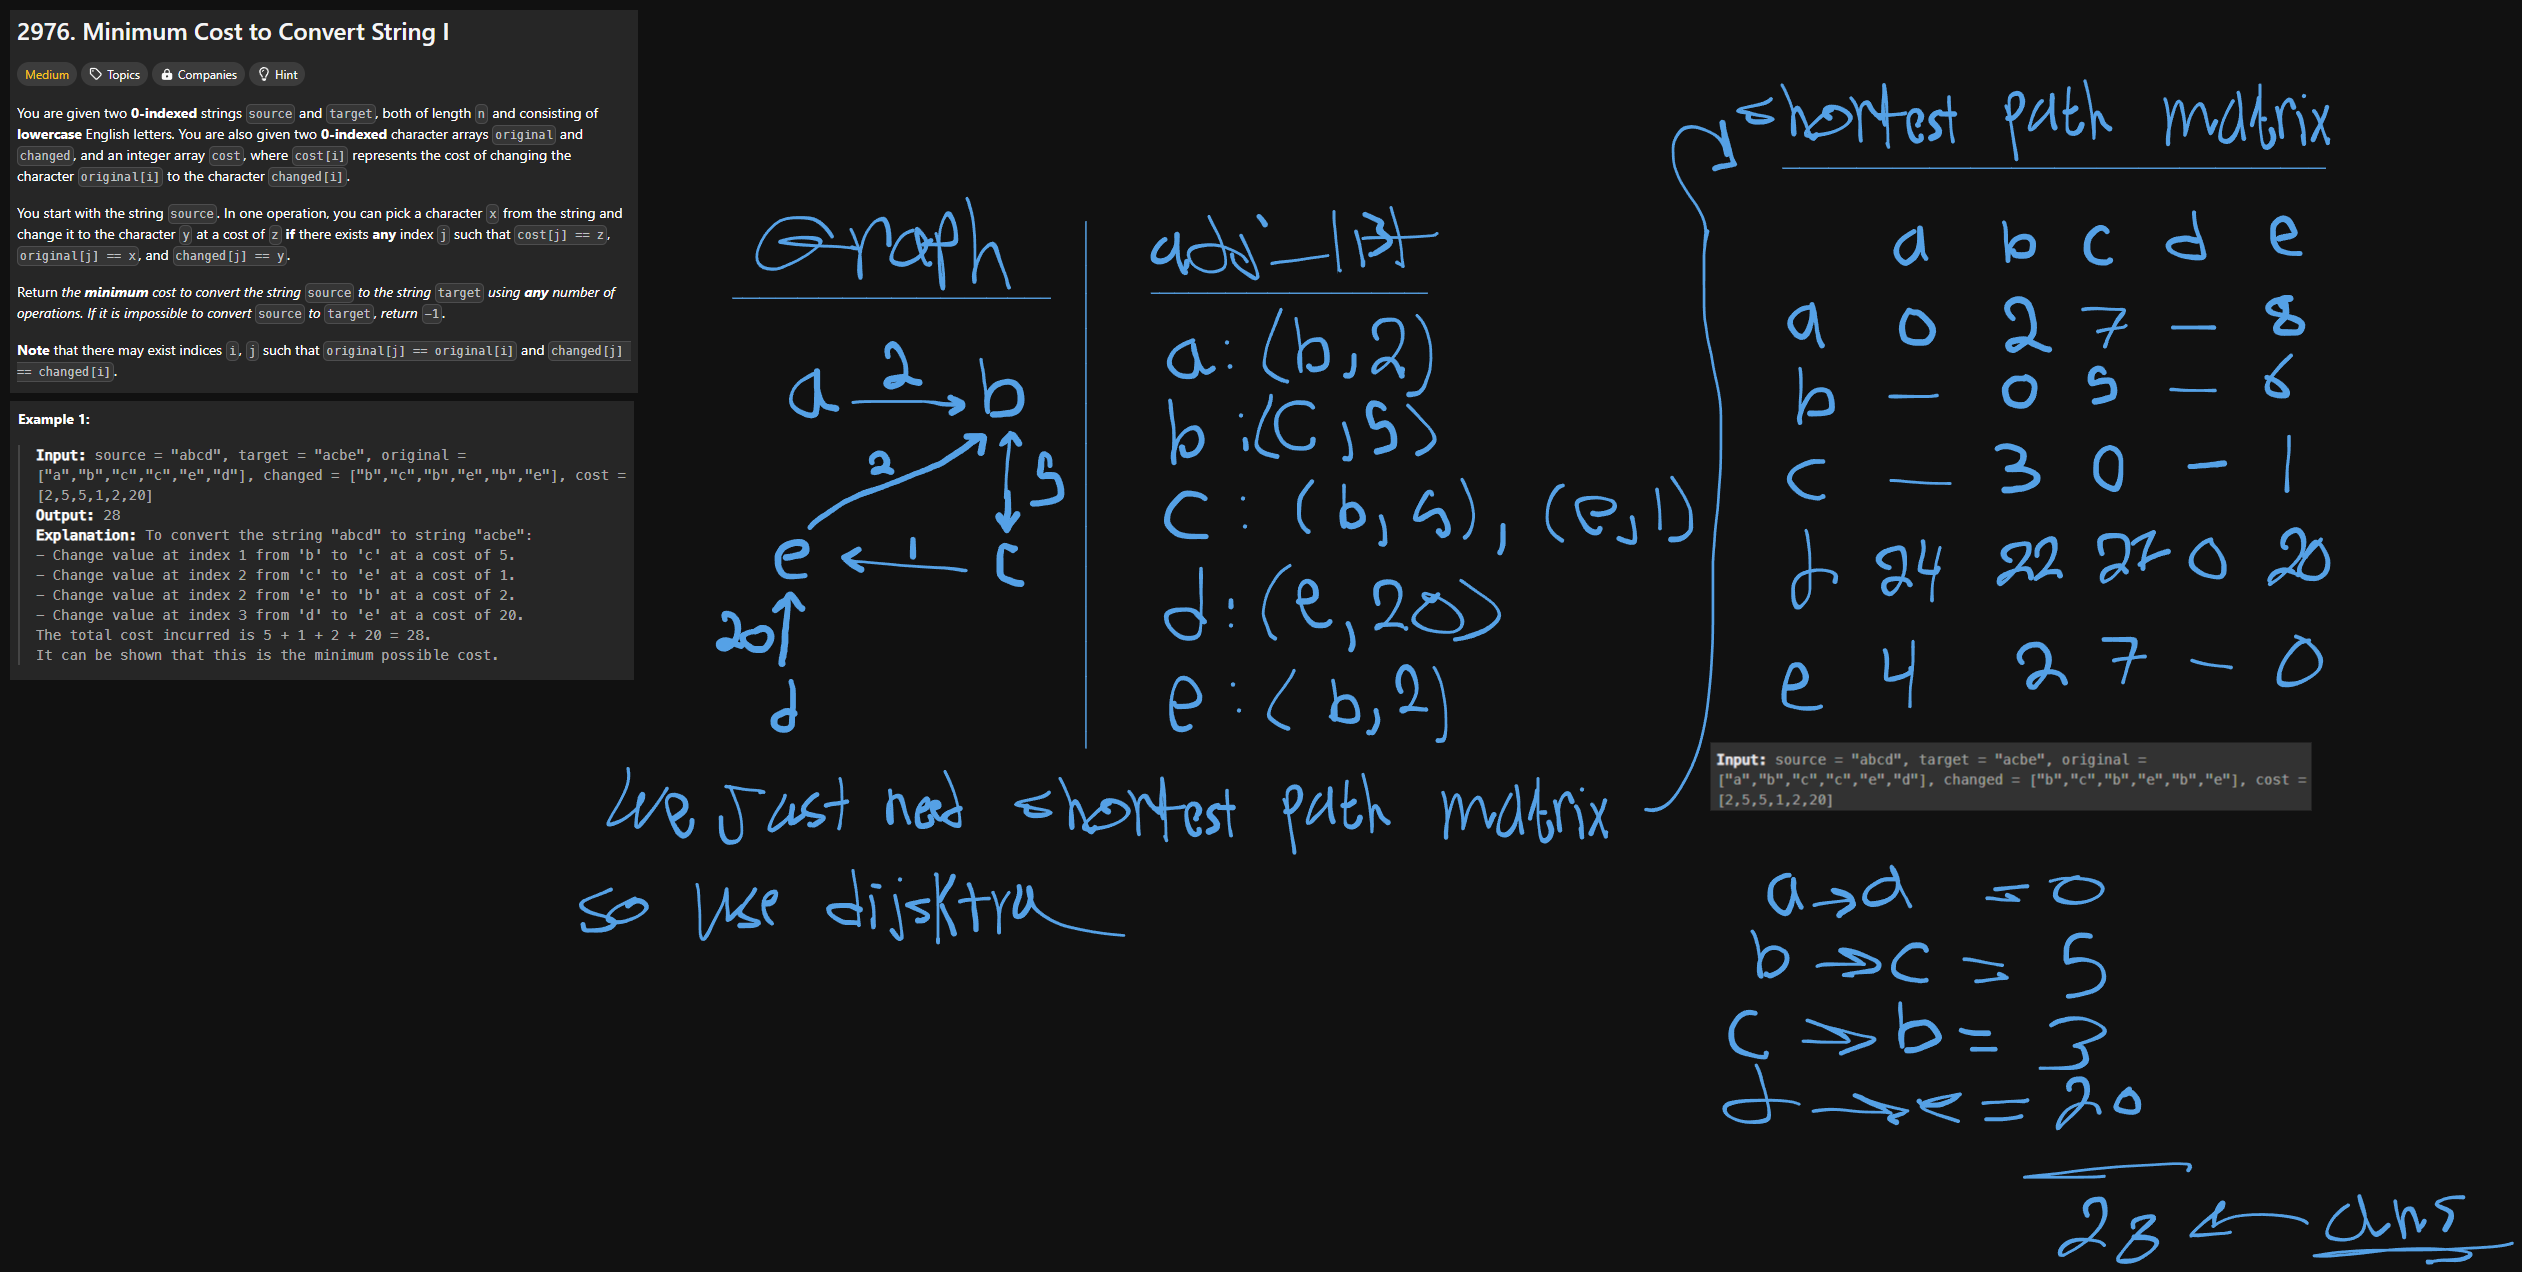 2976. Minimum Cost to Convert String I
Medium Topics Companies Hint
You are given two 0-indexed strings source and target, both of length n and consisting of
lowercase English letters. You are also given two 0-indexed character arrays original and
changed, and an integer array cost, where cost[i] represents the cost of changing the
character original[i] to the character changed[i].
You start with the string source. In one operation, you can pick a character x from the string and
change it to the character y at a cost of z if there exists any index j such that cost[j] == z,
original[j] == x, and changed[j] == y.
Return the minimum cost to convert the string source to the string target using any number of
operations. If it is impossible to convert source to target, return -1.
Note that there may exist indices i, j such that original[j] == original[i] and changed[j]
== changed[i].
Example 1:
Input: source = "abcd", target = "acbe", original =
["a","b","c","c","e","d"], changed = ["b","c","b","e","b","e"], cost =
[2,5,5,1,2,20]
Output: 28
Explanation: To convert the string "abcd" to string "acbe":
- Change value at index 1 from 'b' to 'c' at a cost of 5.
- Change value at index 2 from 'c' to 'e' at a cost of 1.
- Change value at index 2 from 'e' to 'b' at a cost of 2.
- Change value at index 3 from 'd' to 'e' at a cost of 20.
The total cost incurred is 5 + 1 + 2 + 20 = 28.
It can be shown that this is the minimum possible cost.
Graph
a 2 b
2
5
e 1 c
20
d
adj_list
a: (b,2)
b: (c,5)
c: (b,5), (e,1)
d: (e,20)
e: (b,2)
we just need shortest path matrix
so use dijsktra
shortest path matrix
a b c d e
a 0 2 7 - 8
b - 0 5 - 6
c - 3 0 - 1
d 24 22 27 0 20
e 4 2 7 - 0
Input: source = "abcd", target = "acbe", original =
["a","b","c","c","e","d"], changed = ["b","c","b","e","b","e"], cost =
[2,5,5,1,2,20]
a → a = 0
b → c = 5
c → b = 3
d → e = 20
28 ← ans